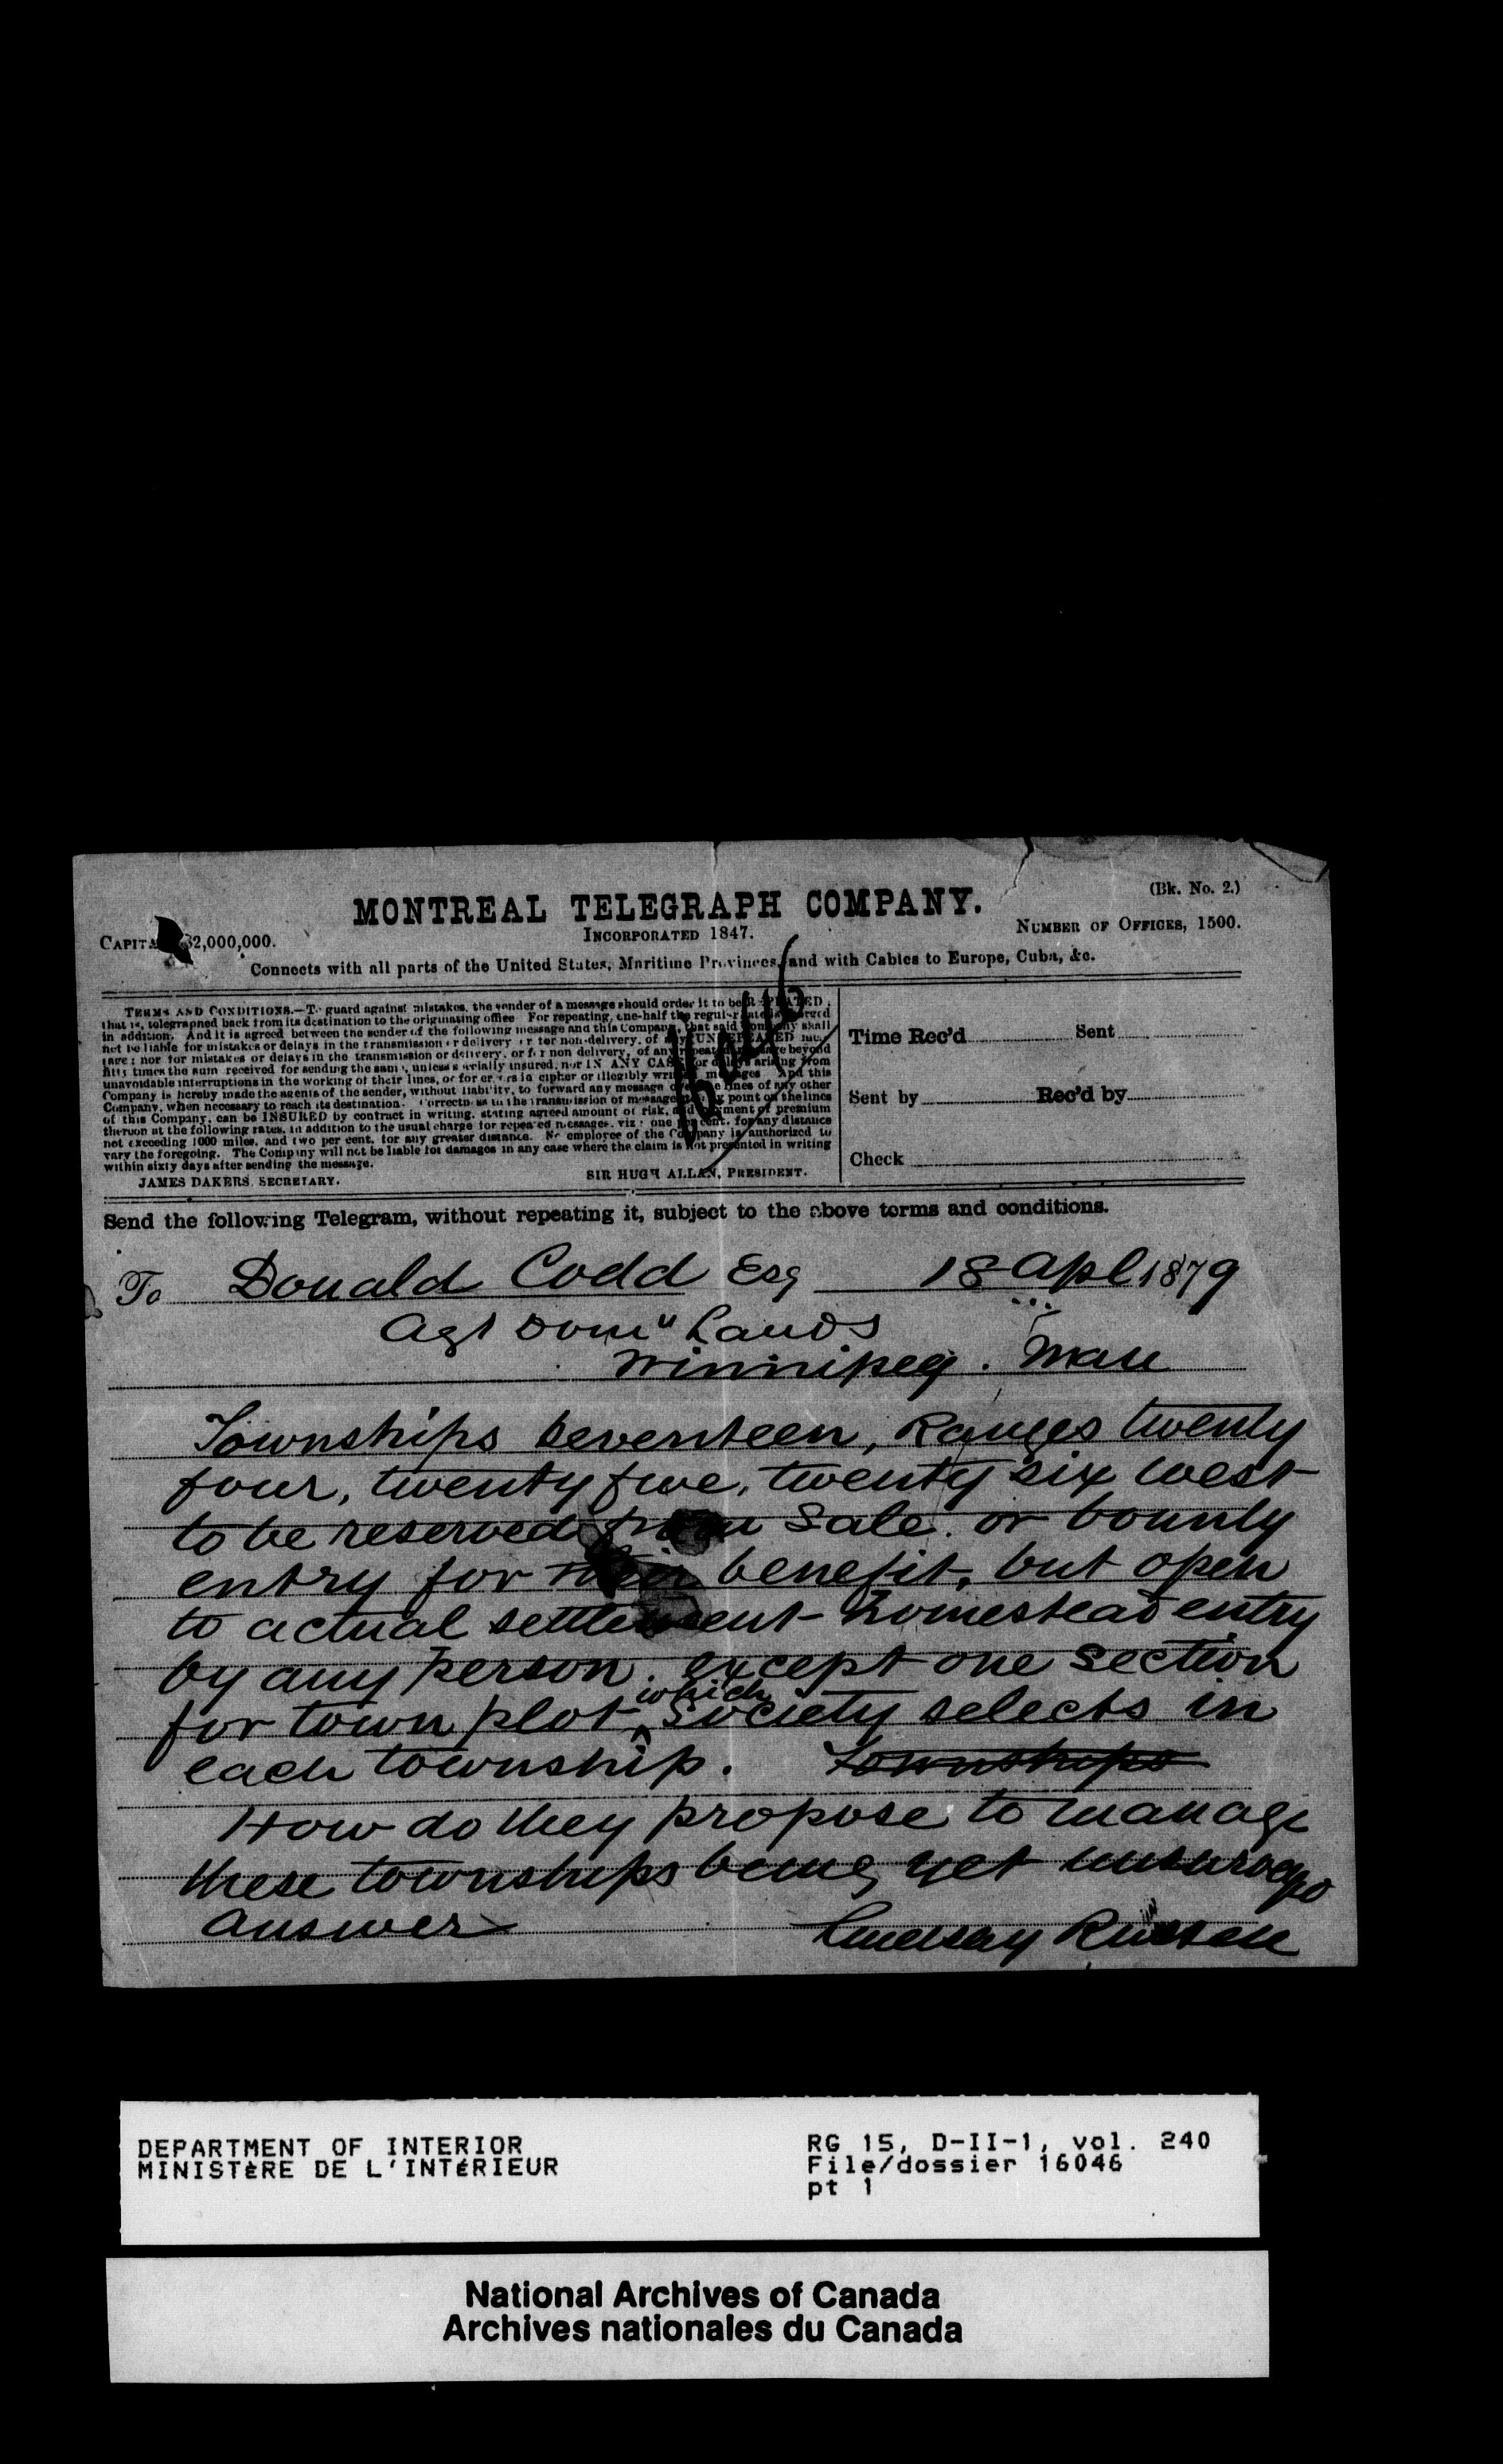 MONTREAL TELEGRAPH COMPANY.
(Bk. No. 2.)
CAPITA $2,000,000.
INCORPORATED 1847.
NUMBER OF OFFICES, 1500.
Connects with all parts of the United States, Maritime Provinces, and with Cables to Europe, Cuba, &c.
TERMS AND CONDITIONS.—To guard against mistakes, the sender of a message should order it to be REPEATED;
that is, telegraphed back from its destination to the originating office. For repeating, one-half the regular rate is charged
in addition. And it is agreed between the sender of the following message and this Company, that said Company shall
not be liable for mistakes or delays in the transmission or delivery or for non-delivery, of any UNREPEATED mes-
sage; nor for mistakes or delays in the transmission or delivery, or for non delivery, of any repeated message beyond
fifty times the sum received for sending the same, unless specially insured, nor IN ANY CASE for delays arising from
unavoidable interruptions in the working of their lines, or for errors in cipher or illegibly written messages. And this
Company is hereby made the agents of the sender, without liability, to forward any message over the lines of any other
Company, when necessary to reach its destination. Correctness in the transmission of messages to any point on the lines
of this Company, can be INSURED by contract in writing, stating agreed amount of risk, and payment of premium
thereon at the following rates, in addition to the usual charge for repeated messages, viz: one per cent. for any distance
not exceeding 1000 miles, and two per cent. for any greater distance. No employee of the Company is authorized to
vary the foregoing. The Company will not be liable for damages in any case where the claim is not presented in writing
within sixty days after sending the message.
JAMES DAKERS, SECRETARY.
SIR HUGH ALLAN, PRESIDENT.
16046
Time Rec'd Sent
Sent by Rec'd by
Check
Send the following Telegram, without repeating it, subject to the above terms and conditions.
To Donald Codd Esq 18 Apl 1879
Agt Domn Lands
Winnipeg. Man
Townships seventeen, Ranges twenty
four, twenty five, twenty six west
to be reserved from Sale. or bounty
entry for their benefit, but open
to actual settlement homestead entry
by any person. except one section
for town plot which Society selects in
each township. Townships
How do they propose to manage
these townships being yet unsurveyed
Answer
Lindsay Russell
DEPARTMENT OF INTERIOR
MINISTÈRE DE L'INTÉRIEUR
RG 15, D-II-1, vol. 240
File/dossier 16046
pt 1
National Archives of Canada
Archives nationales du Canada